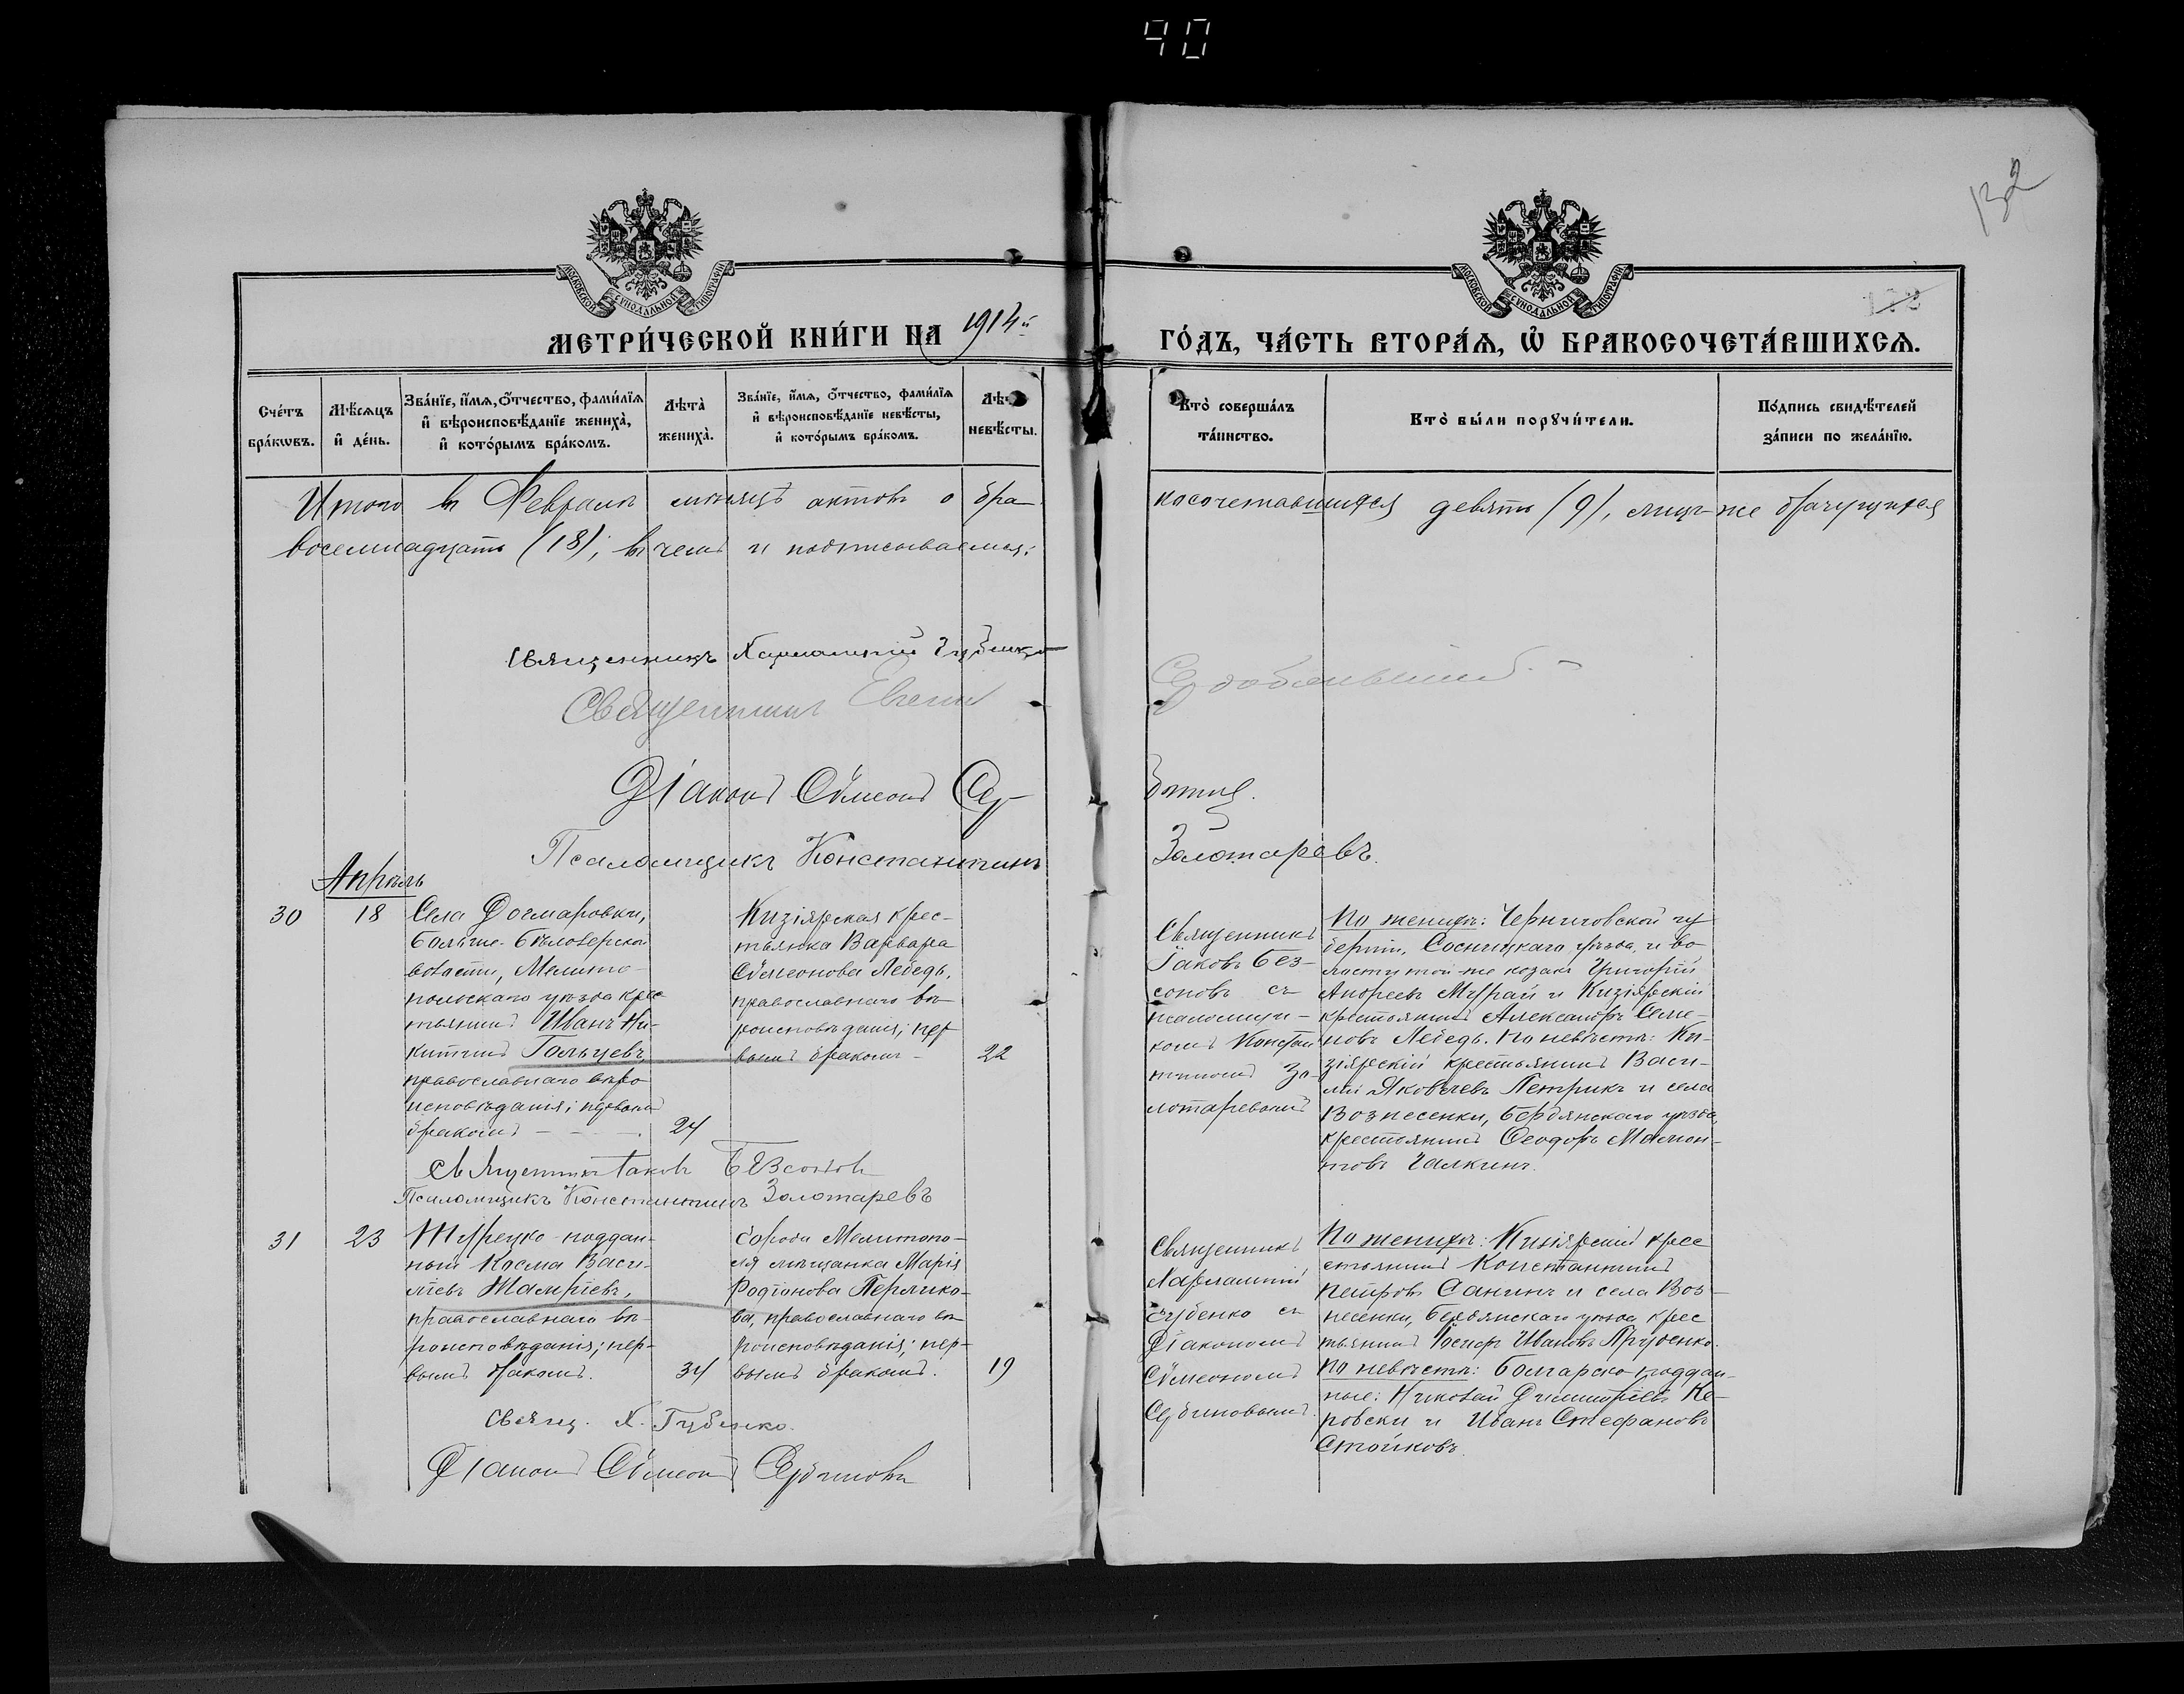 90
132
МОСКОВСКОЙ СѴНОДАЛЬНОЙ ТИПОГРАФІИ
МОСКОВСКОЙ СѴНОДАЛЬНОЙ ТИПОГРАФІИ
МЕТРИ́ЧЕСКОЙ КНИ́ГИ НА 1914й ГО́ДЪ, ЧА́СТЬ ВТОРА́Ѧ, Ѡ҆ БРАКОСОЧЕТА́ВШИХСѦ.
Сче́тъ бра́кѡвъ.
Мѣ́сѧцъ и҆ де́нь.
Зва́нїе, и҆́мѧ, о҆́тчество, фами́лїѧ
и҆ вѣроисповѣ́данїе жениха̀,
и҆ кото́рымъ бра́комъ.
Лѣта̀ жениха̀.
Зва́нїе, и҆́мѧ, о҆́тчество, фами́лїѧ
и҆ вѣроисповѣ́данїе невѣ́сты,
и҆ кото́рымъ бра́комъ.
невѣ́сты.
Кто̀ соверша́лъ
та́инство.
Кто̀ бы́ли порꙋчи́тели.
По́дпись свидѣ́телей
за́писи по жела́нїю.
Итого въ Февралѣ мѣсяцѣ актовъ о бракосочетавшихся девять (9), лицъ же брачущихся
восемнадцать (18); въ чемъ и подписываемся:
Священникъ Харлампій Губенко
Священникъ Евгеній
Діаконъ Сѵмеонъ Сербинъ.
Псаломщикъ Константинъ Золотаревъ.
Апрѣль
30
18
Села Догмаровки,
Больше-Бѣлозерской
волости, Мелито-
польскаго уѣзда крес-
тьянинъ Иванъ Ни-
китинъ Гольцевъ,
православнаго вѣро-
исповѣданія; первымъ
бракомъ — — .
24
Кизіярская крес-
тьянка Варвара
Сѵмеонова Лебедь,
православнаго вѣ-
роисповѣданія; пер-
вымъ бракомъ —
22
Священникъ
Іаковъ Без-
соновъ съ
псаломщи-
комъ Констан-
тиномъ Зо-
лотаревымъ
По женихѣ: Черниговской гу-
берніи, Сосницкаго уѣзда и во-
лости той-же козакъ Григорій
Андреевъ Мурай и Кизіярскій
крестьянинъ Александръ Семе-
новъ Лебедь. По невѣстѣ: Ки-
зіярскій крестьянинъ Васи-
лій Яковлевъ Петрикъ и села
Вознесенки, Бердянскаго уѣзда,
крестьянинъ Ѳеодоръ Мамон-
товъ Галкинъ.
Священникъ Іаковъ Безсоновъ
Псаломщикъ Константинъ Золотаревъ
31
23
Турецко-поддан-
ный Косма Васи-
ліевъ Тамріевъ,
православнаго вѣ-
роисповѣданія; пер-
вымъ бракомъ.
34
Города Мелитопо-
ля мѣщанка Марія
Родіонова Перлико-
ва, православнаго вѣ-
роисповѣданія; пер-
вымъ бракомъ.
19
Священникъ
Харлампій
Губенко съ
Діакономъ
Сѵмеономъ
Сербиновымъ.
По женихѣ: Кизіярскій крес-
стьянинъ Константинъ
Петровъ Санинъ и села Воз-
несенки, Бердянскаго уѣзда крес-
тьянинъ Іосифъ Ивановъ Прудченко.
По невѣстѣ: Болгарско-поддан-
ные: Николай Димитріевъ Ке-
ровски и Иванъ Стефановъ
Стойковъ.
Свящ. Х. Губенко.
Діаконъ Сѵмеонъ Сербиновъ